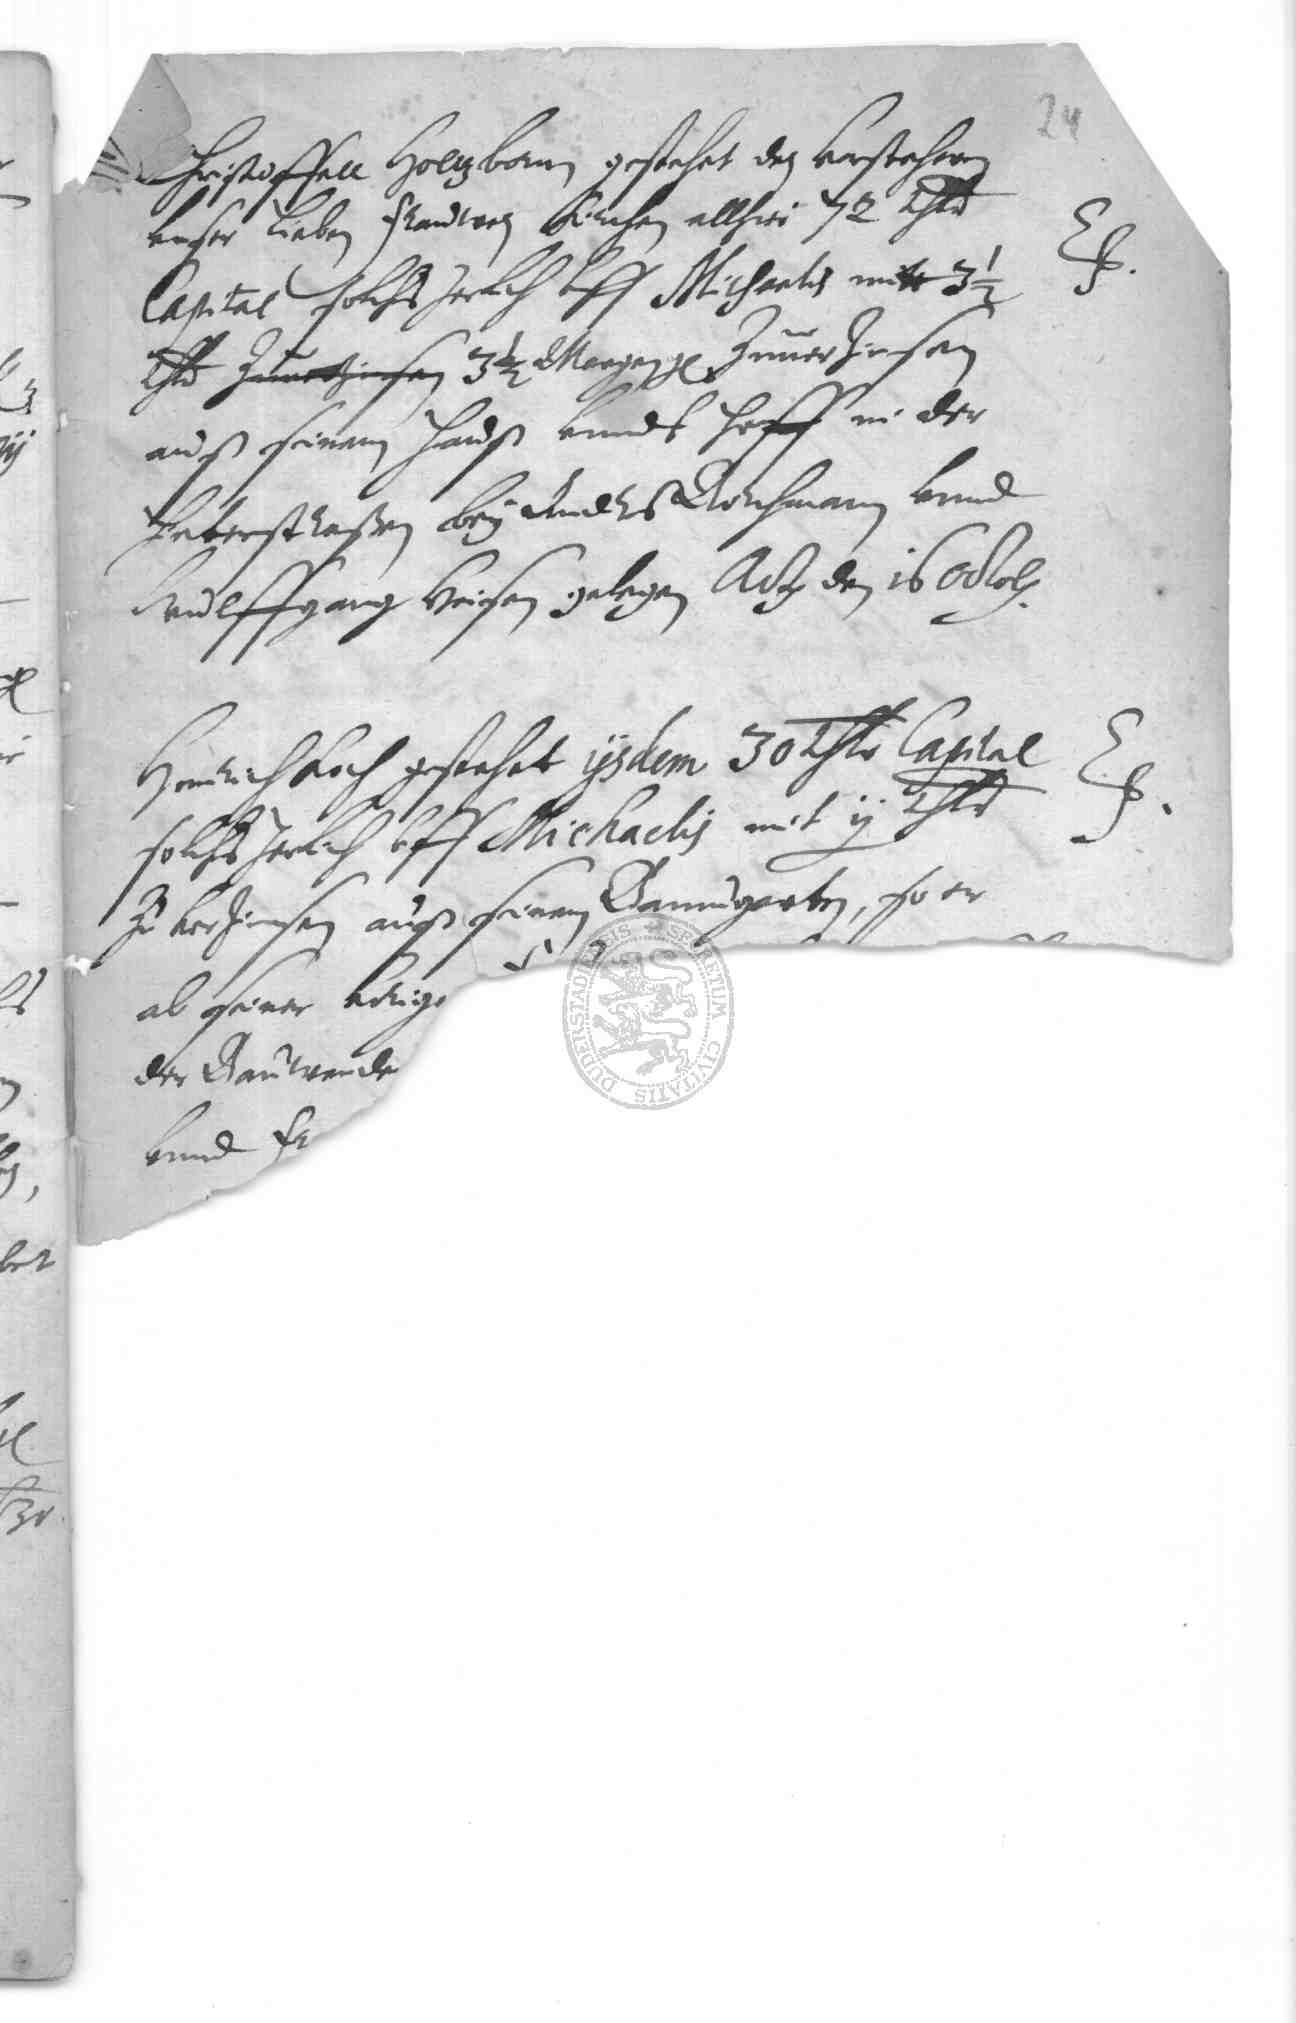 24
Christoffell Holtzborn gestehet den Vorstehern
unser Lieben frauwen Kirchen allhir 72 thlr
Capital solchs Jerlich uff Michaelis mitt 3½
thlr Zuuerzinsen 3½ Margengr Zuuerzinsen
auß seinem Hauß unndt Hoff in der
Haberstraßen bey Andres Bornhman unnd
Wulffgang Heisen gelegen Act den 16 Octob.
Henrich Koch gestehet ijsdem 30 thlr Capital
solchs Jerlich uff Michaelis mit ij thlr
Zu verzinsen auß seinem Baumgarten, so er
ab seiner
der
unnd
DUDERSTADIENSIS SECRETUM CIVITATIS